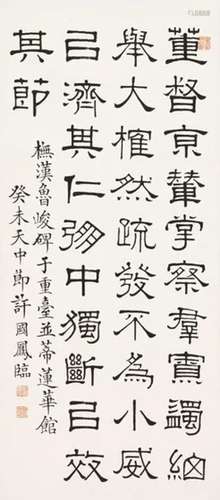 董督京輦掌察羣寮蠲細
舉大榷然疏發不為小威
㠯濟其仁弸中獨斷㠯效
其節
橅漢魯峻碑于重臺並蒂蓮華館
癸未天中節許國鳳臨